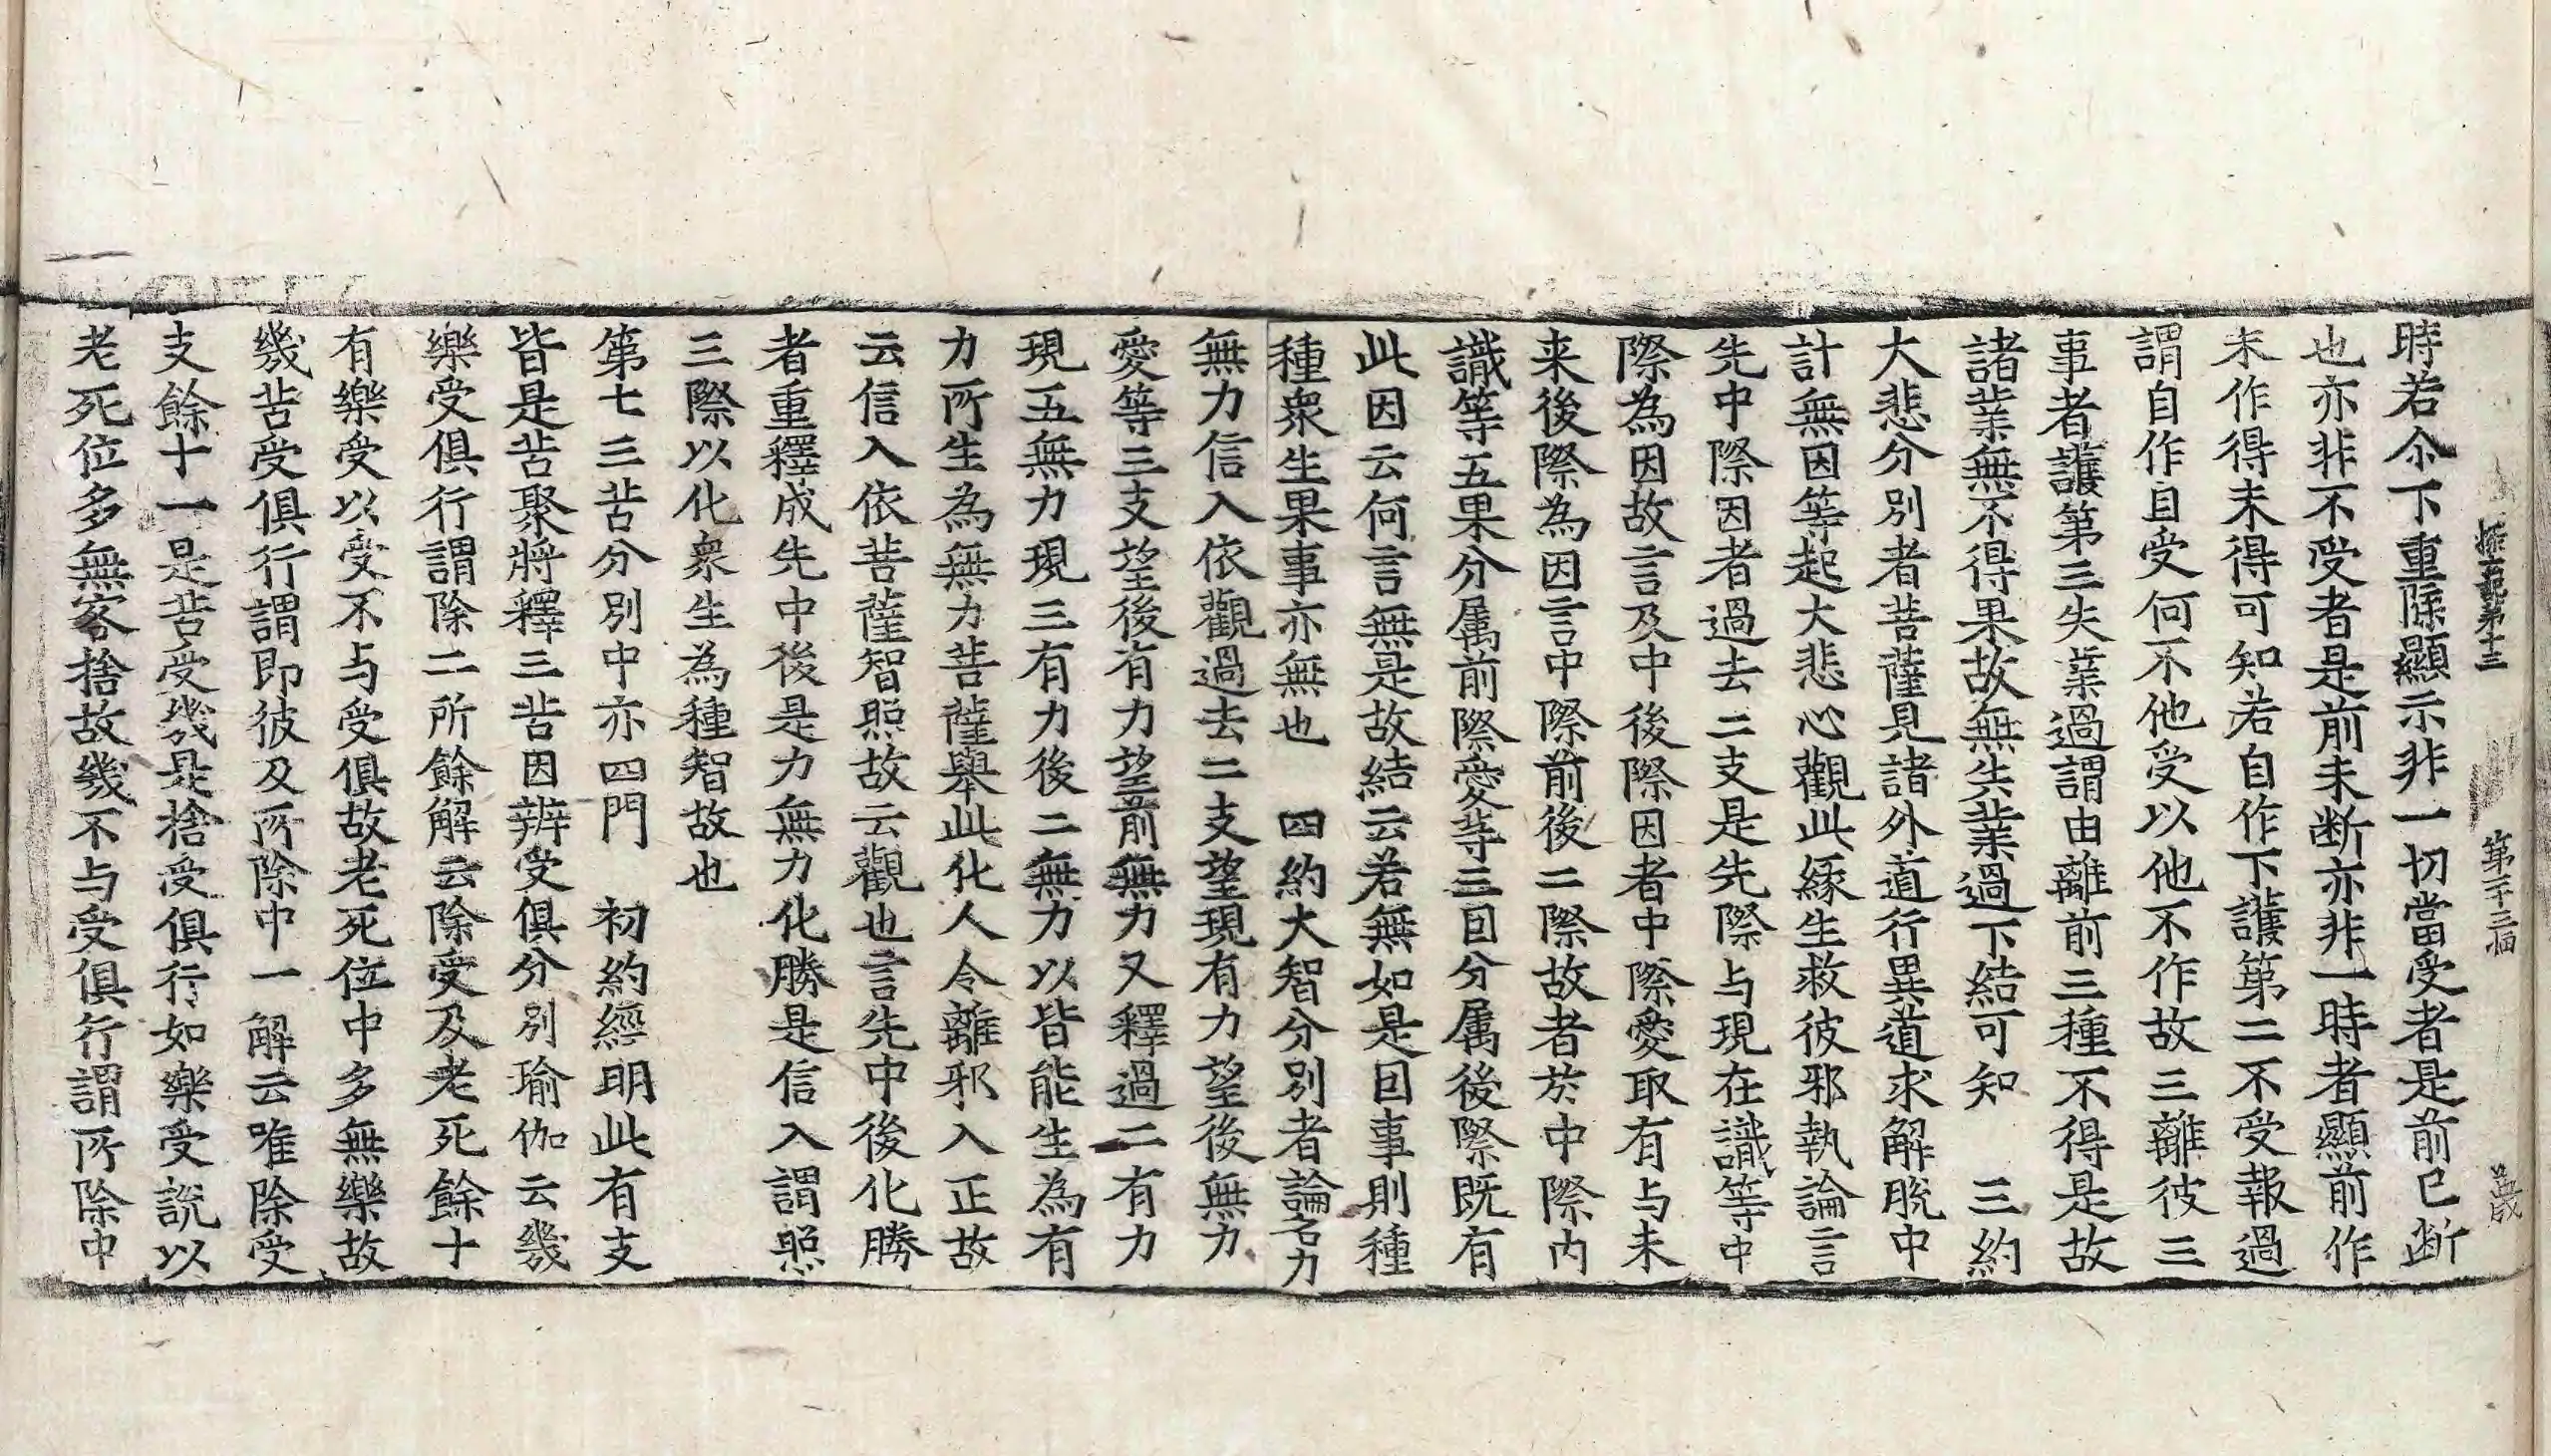 探玄記第十三　第二十三幅
時若尒下重除顯示非一切當受者是前已断
也亦非不受者是前未断亦非一時者顯前作
未作得未得可知若自作下護第二不受報過
謂自作自受何不他受以他不作故三離彼三
事者護第三失業過謂由離前三種不得是故
諸業無不得果故無失業過下結可知　三約
大悲分別者菩薩見諸外道行異道求解脫中
計無因等起大悲心觀此緣生救彼邪執論言
先中際因者過去二支是先際与現在識等中
際為因故言及中後際因者中際愛取有与未
来後際為因言中際前後二際故者於中際内
識等五果分属前際愛等三因分属後際既有
此因云何言無是故結云若無如是因事則種
種衆生果事亦無也　四約大智分別者論名力
無力信入依觀過去二支望現有力望後無力
愛等三支望後有力望前無力又釋過二有力
現五無力現三有力後二無力以皆能生為有
力所生為無力菩薩舉此化人令離邪入正故
云信入依菩薩智照故云觀也言先中後化勝
者重釋成先中後是力無力化勝是信入謂照
三際以化衆生為種智故也
第七三苦分別中亦四門　初約經明此有支
皆是苦聚將釋三苦因辨受俱分別瑜伽云幾
樂受俱行謂除二所餘解云除受及老死餘十
有樂受以受不与受俱故老死位中多無樂故
幾苦受俱行謂即彼及所除中一解云唯除受
支餘十一是苦受幾是捨受俱行如樂受說以
老死位多無客捨故幾不与受俱行謂所除中